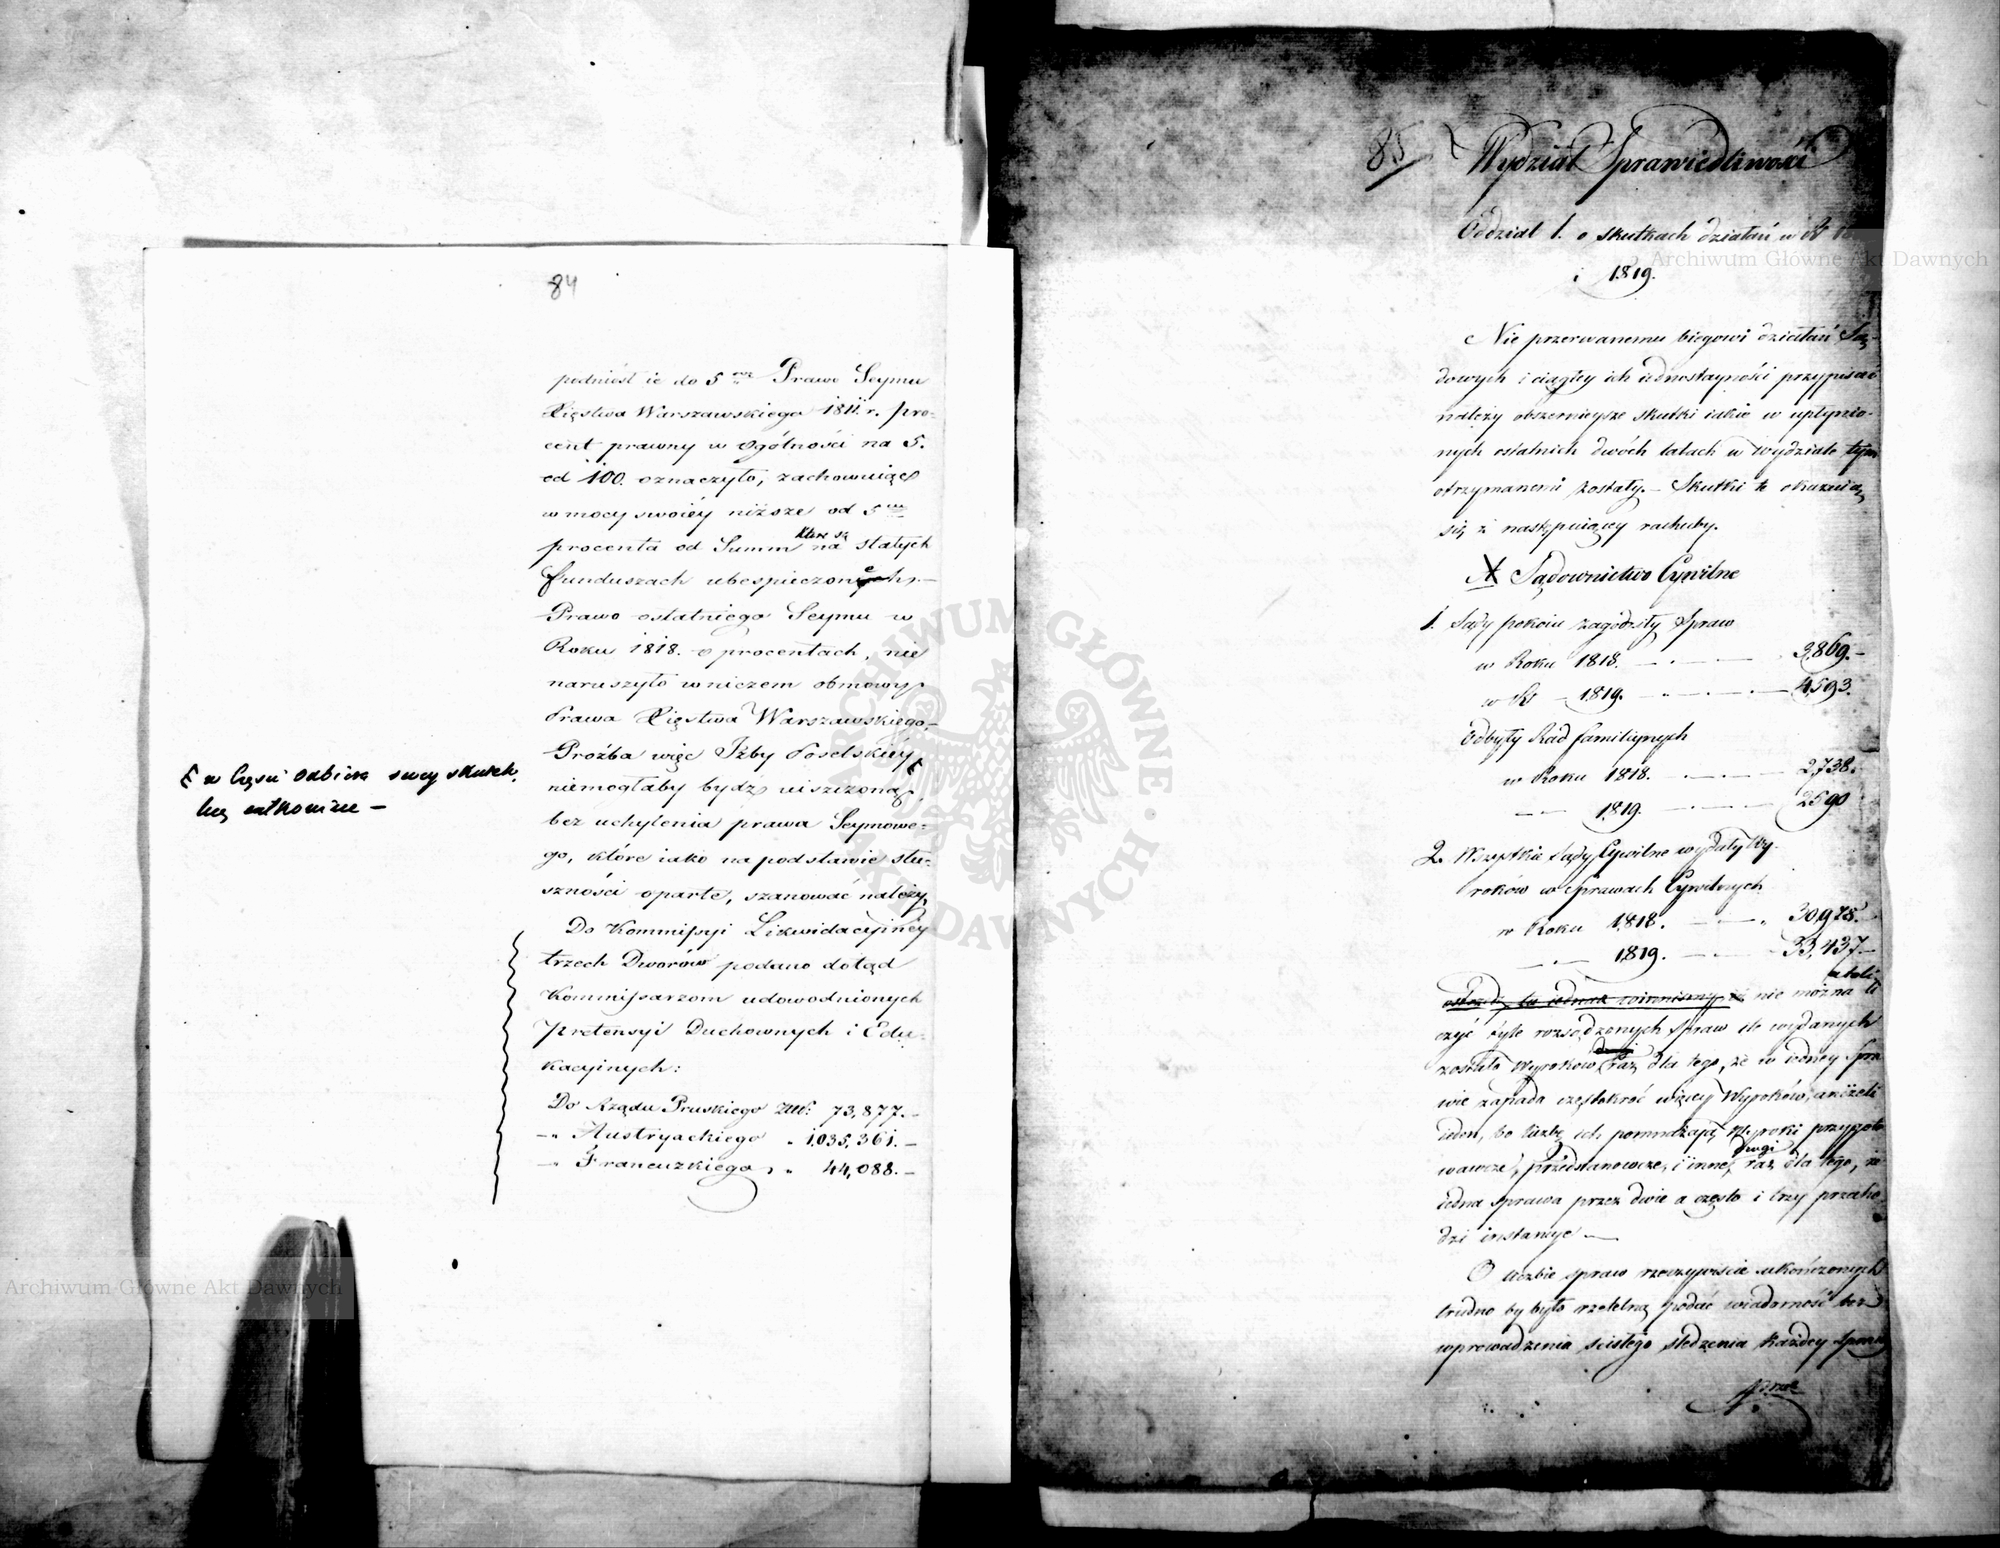 84
podniósł ie do 5 Prawo Seymu
Xięstwa Warszawskiego 1811. r. pro-
cent prawny w ogólności na 5.
od 100. oznaczyło, zachowuiąc
w mocy swoiéy niższe od 5
które są
procenta od Summ na stałych
funduszach ubespieczone.—
Prawo ostatniego Seymu w
Roku 1818. o procentach, nie
naruszyło w niczem obmowy
Prawa Xięstwa Warszawskiego,
Prożba więc Izby Poselskiéy
w Części odbiera swoy skutek,
niemogłaby bydź uiszczoną,
lecz całkowicie —
bez uchylenia prawa Seymowe-
go, które iako na podstawie słu-
szności oparte, szanować należy.
Do Kommissyi Likwidacyjney
trzech Dworów podano dotąd
Kommissarzom udowodnionych
Pretensyi Duchownych i Edu-
kacyinych:
Do Rządu Pruskiego Złł: 73,877.—
—„ Austryackiego „ 1,035,361.—
—„ Francuzkiego „ 44,088.—
85 Wydział Sprawiedliwości
Oddział I. o skutkach działań w
i 1819.
Nie przerwanemu biegowi działań Są-
dowych i ciągłey ich iednostayności przypisać
należy obszernieysze skutki iakie w upłynio-
nych ostatnich dwóch latach w Wydziale tym
otrzymanemi zostały.— Skutki te okazuią
się z następuiącey rachuby.
A Sądownictwo Cywilne
1. Sądy pokoiu zagodziły Spraw
w Roku 1818. — 3,869.—
— 1819. — 4,593.
Odbyły Rad familiynych
w Roku 1818. — 2,738.
— 1819. — 2590
2. Wszystkie Sądy Cywilne wydały Wy-
roków w Sprawach Cywilnych
w Roku 1818. — 30,975.—
— 1819. — 33,437.—
atoli
nie można li
czyć tyle rozsądzonych Spraw ile wydanych
zostało Wyroków, raz dla tego, że w iedney Spra
wie zapada częstokroć więcey Wyroków, aniżeli
ieden, bo liczbę ich pomnażaią Wyroki przygoto
drugi
wawcze, przedstanowcze, i inne, raz dla tego, że
iedna sprawa przez dwie a często i trzy przecho
dzi instancye —
O liczbie spraw rzeczywiście ukończonych
trudno by było rzetelną podać wiadomość bez
wprowadzenia ścisłego śledzenia każdey Sprawy
Archiwum Główne Akt Dawnych
Archiwum Główne Akt Dawnych
ARCHIWUM GŁÓWNE AKT DAWNYCH